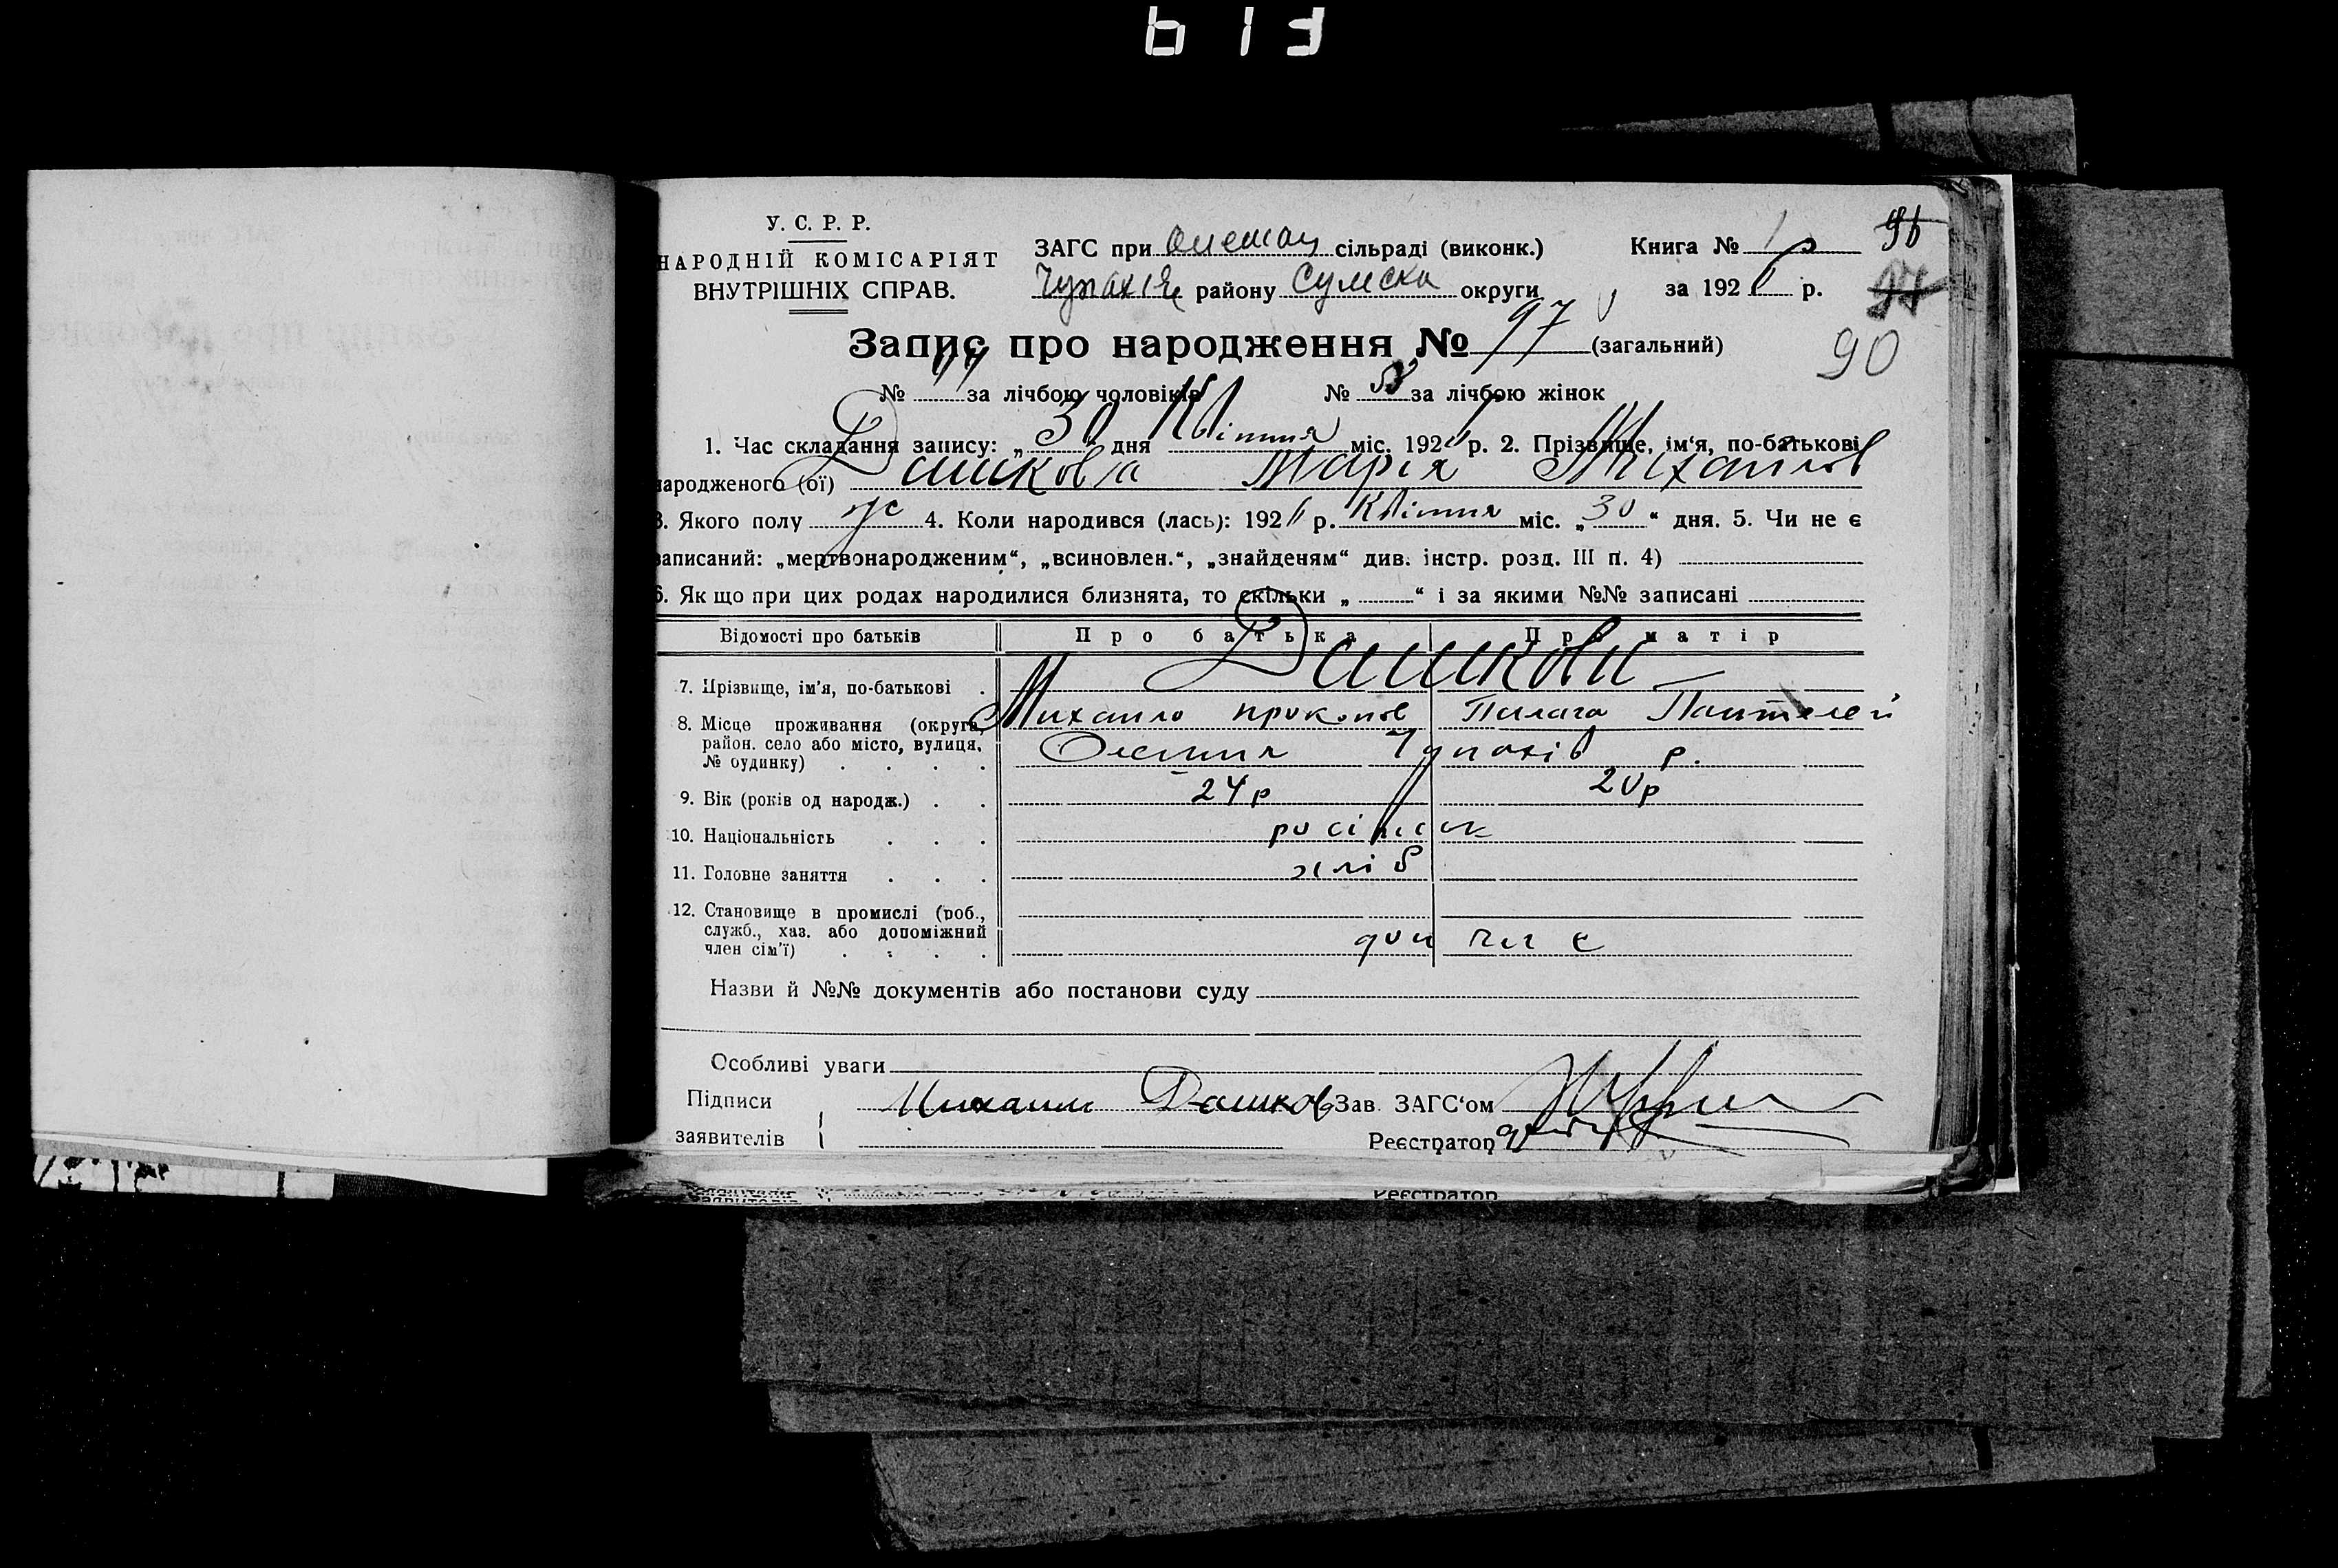 613
У. С. Р. Р.
НАРОДНІЙ КОМІСАРІЯТ
ВНУТРІШНІХ СПРАВ.
ЗАГС при сільраді (виконк.)
Чупахів району Сумска округи
Книга № 1
за 192 р.
96
90
Запис про народження № 97 (загальний)
№ 44 за лічбою чоловіків № 53 за лічбою жінок
1. Час складання запису: „ 30 “ дня Квітня міс. 192 р. 2. Прізвище, ім‘я, по-батькові
народженого (ої) Дашкова Марія Михайлов
3. Якого полу ж 4. Коли народився (лась): 192 р. Квітня міс. „ 30 “ дня. 5. Чи не є
записаний: „мертвонародженим“, „всиновлен.“, „знайденям“ див. інстр. розд. III п. 4)
6. Як що при цих родах народилися близнята, то скільки „ “ і за якими №№ записані
Відомості про батьків Про батька Про матір
7. Прізвище, ім'я, по-батькові . Дашкови
Михаило Прокопов Палага Пантелей
8. Місце проживання (округа,
район. село або місто, вулиця,
№ будинку) . . . . Олешня Чупахів р.
9. Вік (років од народж.) . . 24 р 20 р
10. Національність . . . росіяни
11. Головне заняття . . . хліб
12. Становище в промислі (роб.,
служб., хаз. або допоміжний
член сім'ї) . . . . доп чл с
Назви й №№ документів або постанови суду
Особливі уваги
Підписи Михаил Дашков Зав. ЗАГС‘ом
заявителів Реєстратор
заявителів Реєстратор